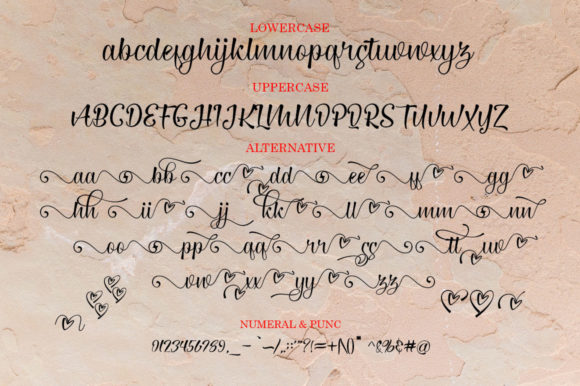 LOWERCASE
abcdefghijklmnopqrstuvwxyz
UPPERCASE
ABCDEFGHIJKLMNOPQRSTUVWXYZ
ALTERNATIVE
aa bb cc dd ee ff gg
hh ii jj kk ll mm nn
oo pp qq rr ss tt uw
vw xx yy zz
NUMERAL & PUNC
0123456789 #@